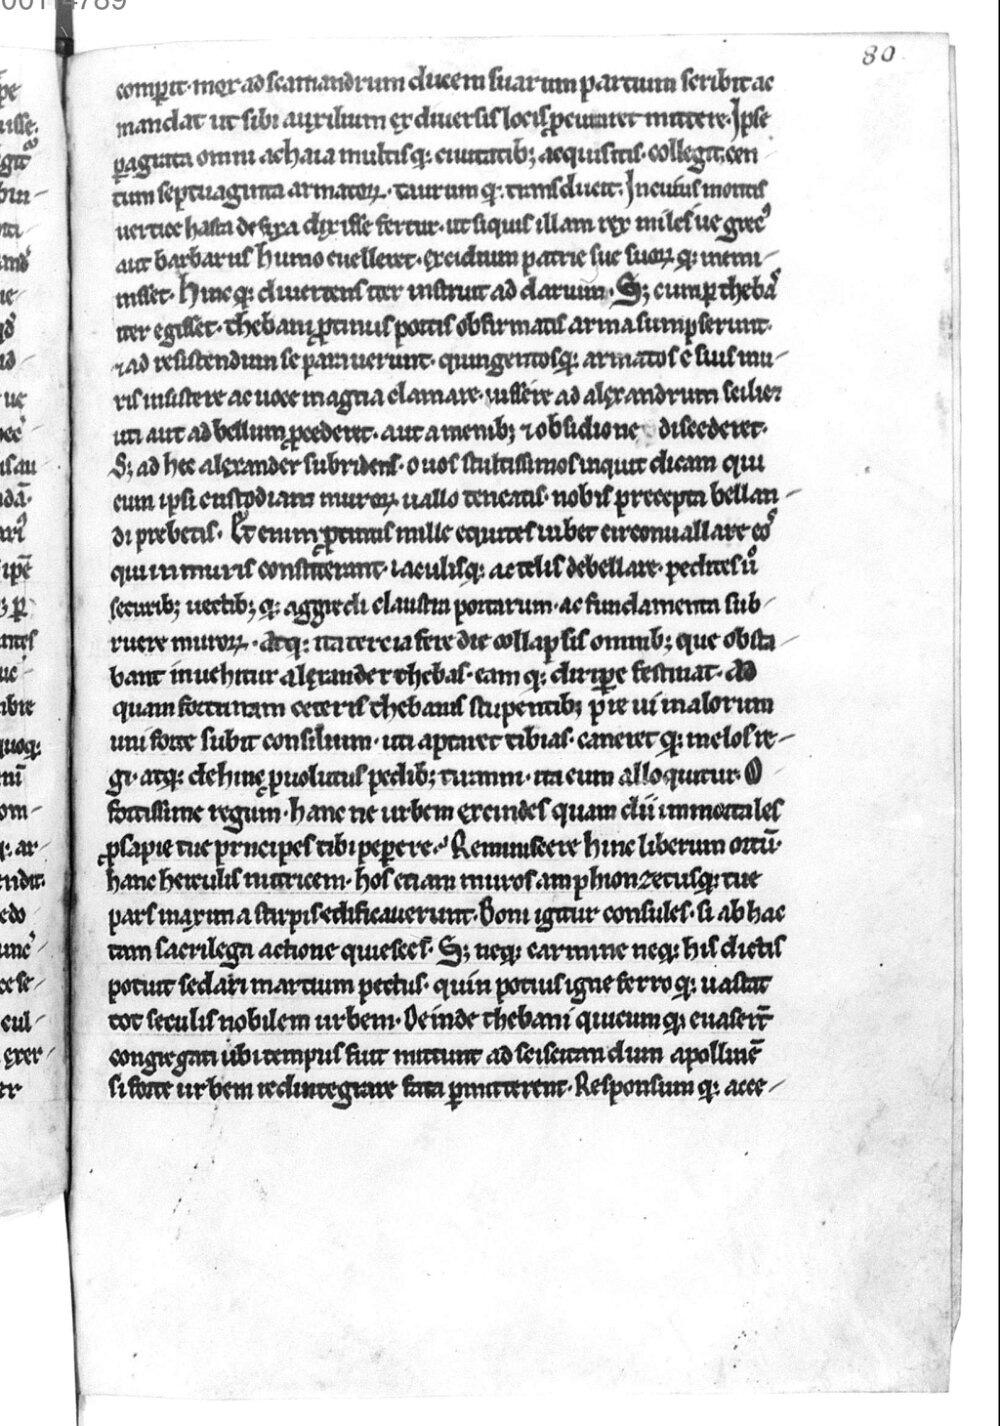 80
comꝑit· mox ad scamandrum ducem suarum partium scribit ac
mandat ut sibi auxilium ex diuersis locis ꝓcuraret mittere· Ipse
ꝑagrata omni achaia multisq; ciuitatib; acquisitis· collegit cen
tum septuaginta armatoꝝ· taurum q; transducit· In cuius montis
uertice hasta defixa dixisse fertur· ut siquis illam rex miles ue grecꝰ
aut barbarus humo euelleret· excidium patrie sue suoꝝ q; memi-
nisset· Hinc q; diuertens iter instruit ad darium· S; cum ꝑ thebāſ
iter egisset· thebani ꝓtinus portis obfirmatis arma sumpserunt·
⁊ ad resistendum se parauerunt· quingentosq; armatos e suis mu-
ris insistere ac uoce magna clamare· iussere ad alexandrum scilicet
uti aut ad bellum ꝓcederet· aut a menib; ⁊ obsidione discederet·
S; ad hec alexander subridens· o uos stultissimos inquit dicam qui
cum ipsi custodiam muroꝝ uallo teneatis· nobis precepta bellan-
di prebetis· Et enim ꝓtinus mille equites iubet circonuallare eoſ
qui in muris constiterant· iaculisq; ac telis debellare· pedites uͦ
securib; uectib; q; aggredi claustra portarum· ac fundamenta sub-
ruere muroꝝ· Atq; ita tercia fere die collapsis omnib; que obsta-
bant inuehitur alexander thebas· eam q; diriꝑe festinat· Ad
quam fortunam ceteris thebanis stupentib; p̄ie ui malorum
uni forte subit consilium· uti aptaret tibias· caneret q; melos re-
gi· atq; dehinc ꝓuolutus pedib; tuum· ita eum alloquitur· O
fortissime regum· hanc ne urbem excindes quam dii immortales
ꝓsapie tue principes tibi peꝑere· Reminiscere hinc liberum ortū·
hanc herculis nutricem· hos etiam muros amphion zetusq; tue
pars maxima stirpis edificauerunt· Boni igitur consules· si ab hac
tam sacrilega actione quiesces· S; neq; carmine neq; his dictis
potuit sedari martium pectus· quin potius igne ferro q; uastat
tot seculis nobilem urbem· Deinde thebani quicumq; euaserīt
congregati ubi tempus fuit mittunt ad sciscitandum apollinē
si forte urbem redintegrare fata ꝑmitterent· Responsum q; acce-